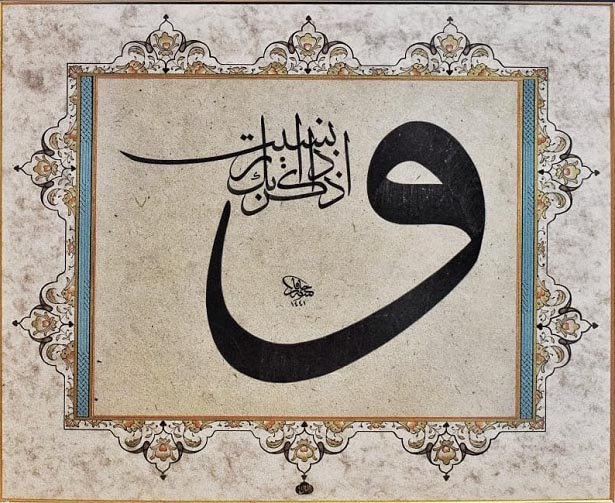 واذكر ربك اذا نسيت
١٤٤١